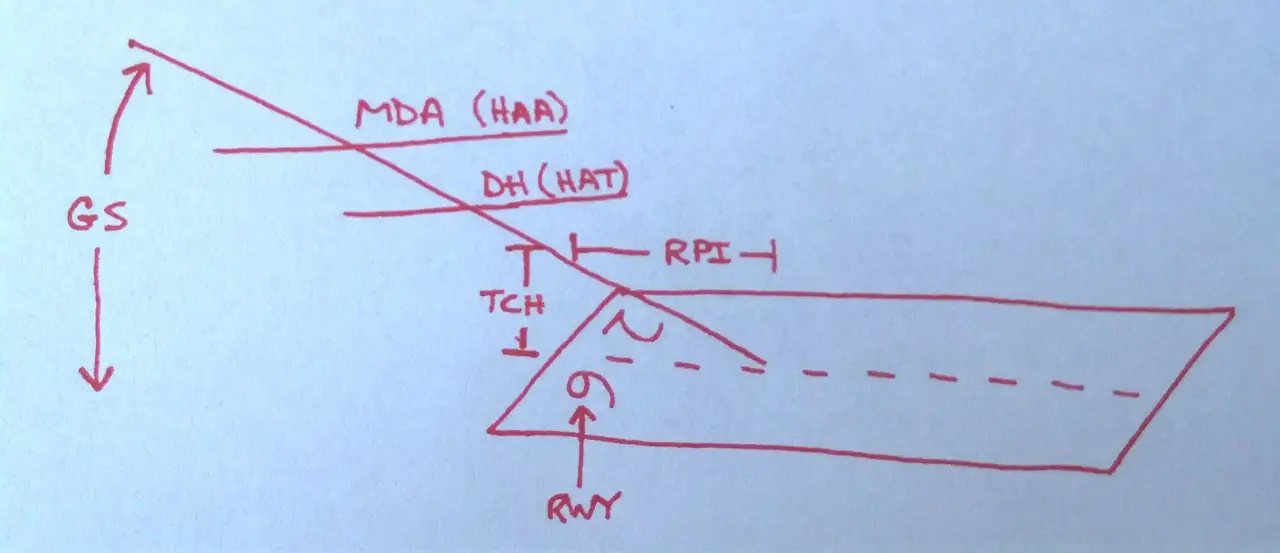 MDA (HAA)
DH (HAT)
GS
RPI
TCH
27
RWY